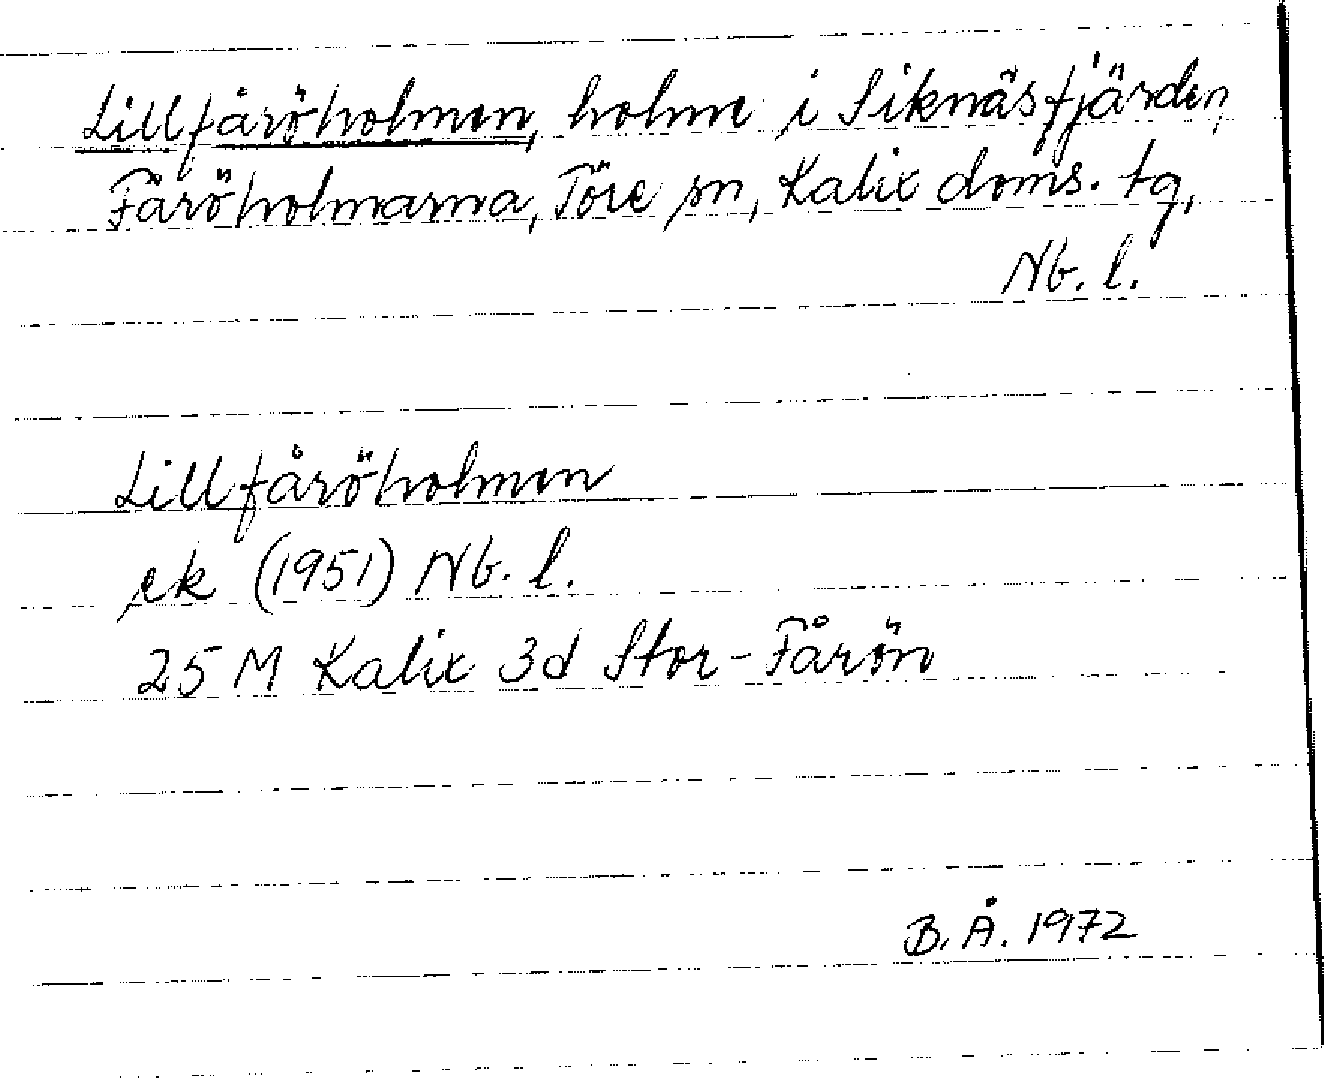 Lillfåröholmen, holme i Siknäsfjärden,
Fåröholmarna, Töre sn, Kalix doms. tg,
Nb. l.
Lillfåröholmen
ek (1951) Nb. l.
25 M Kalix 3d Stor-Fårön
B. Å. 1972